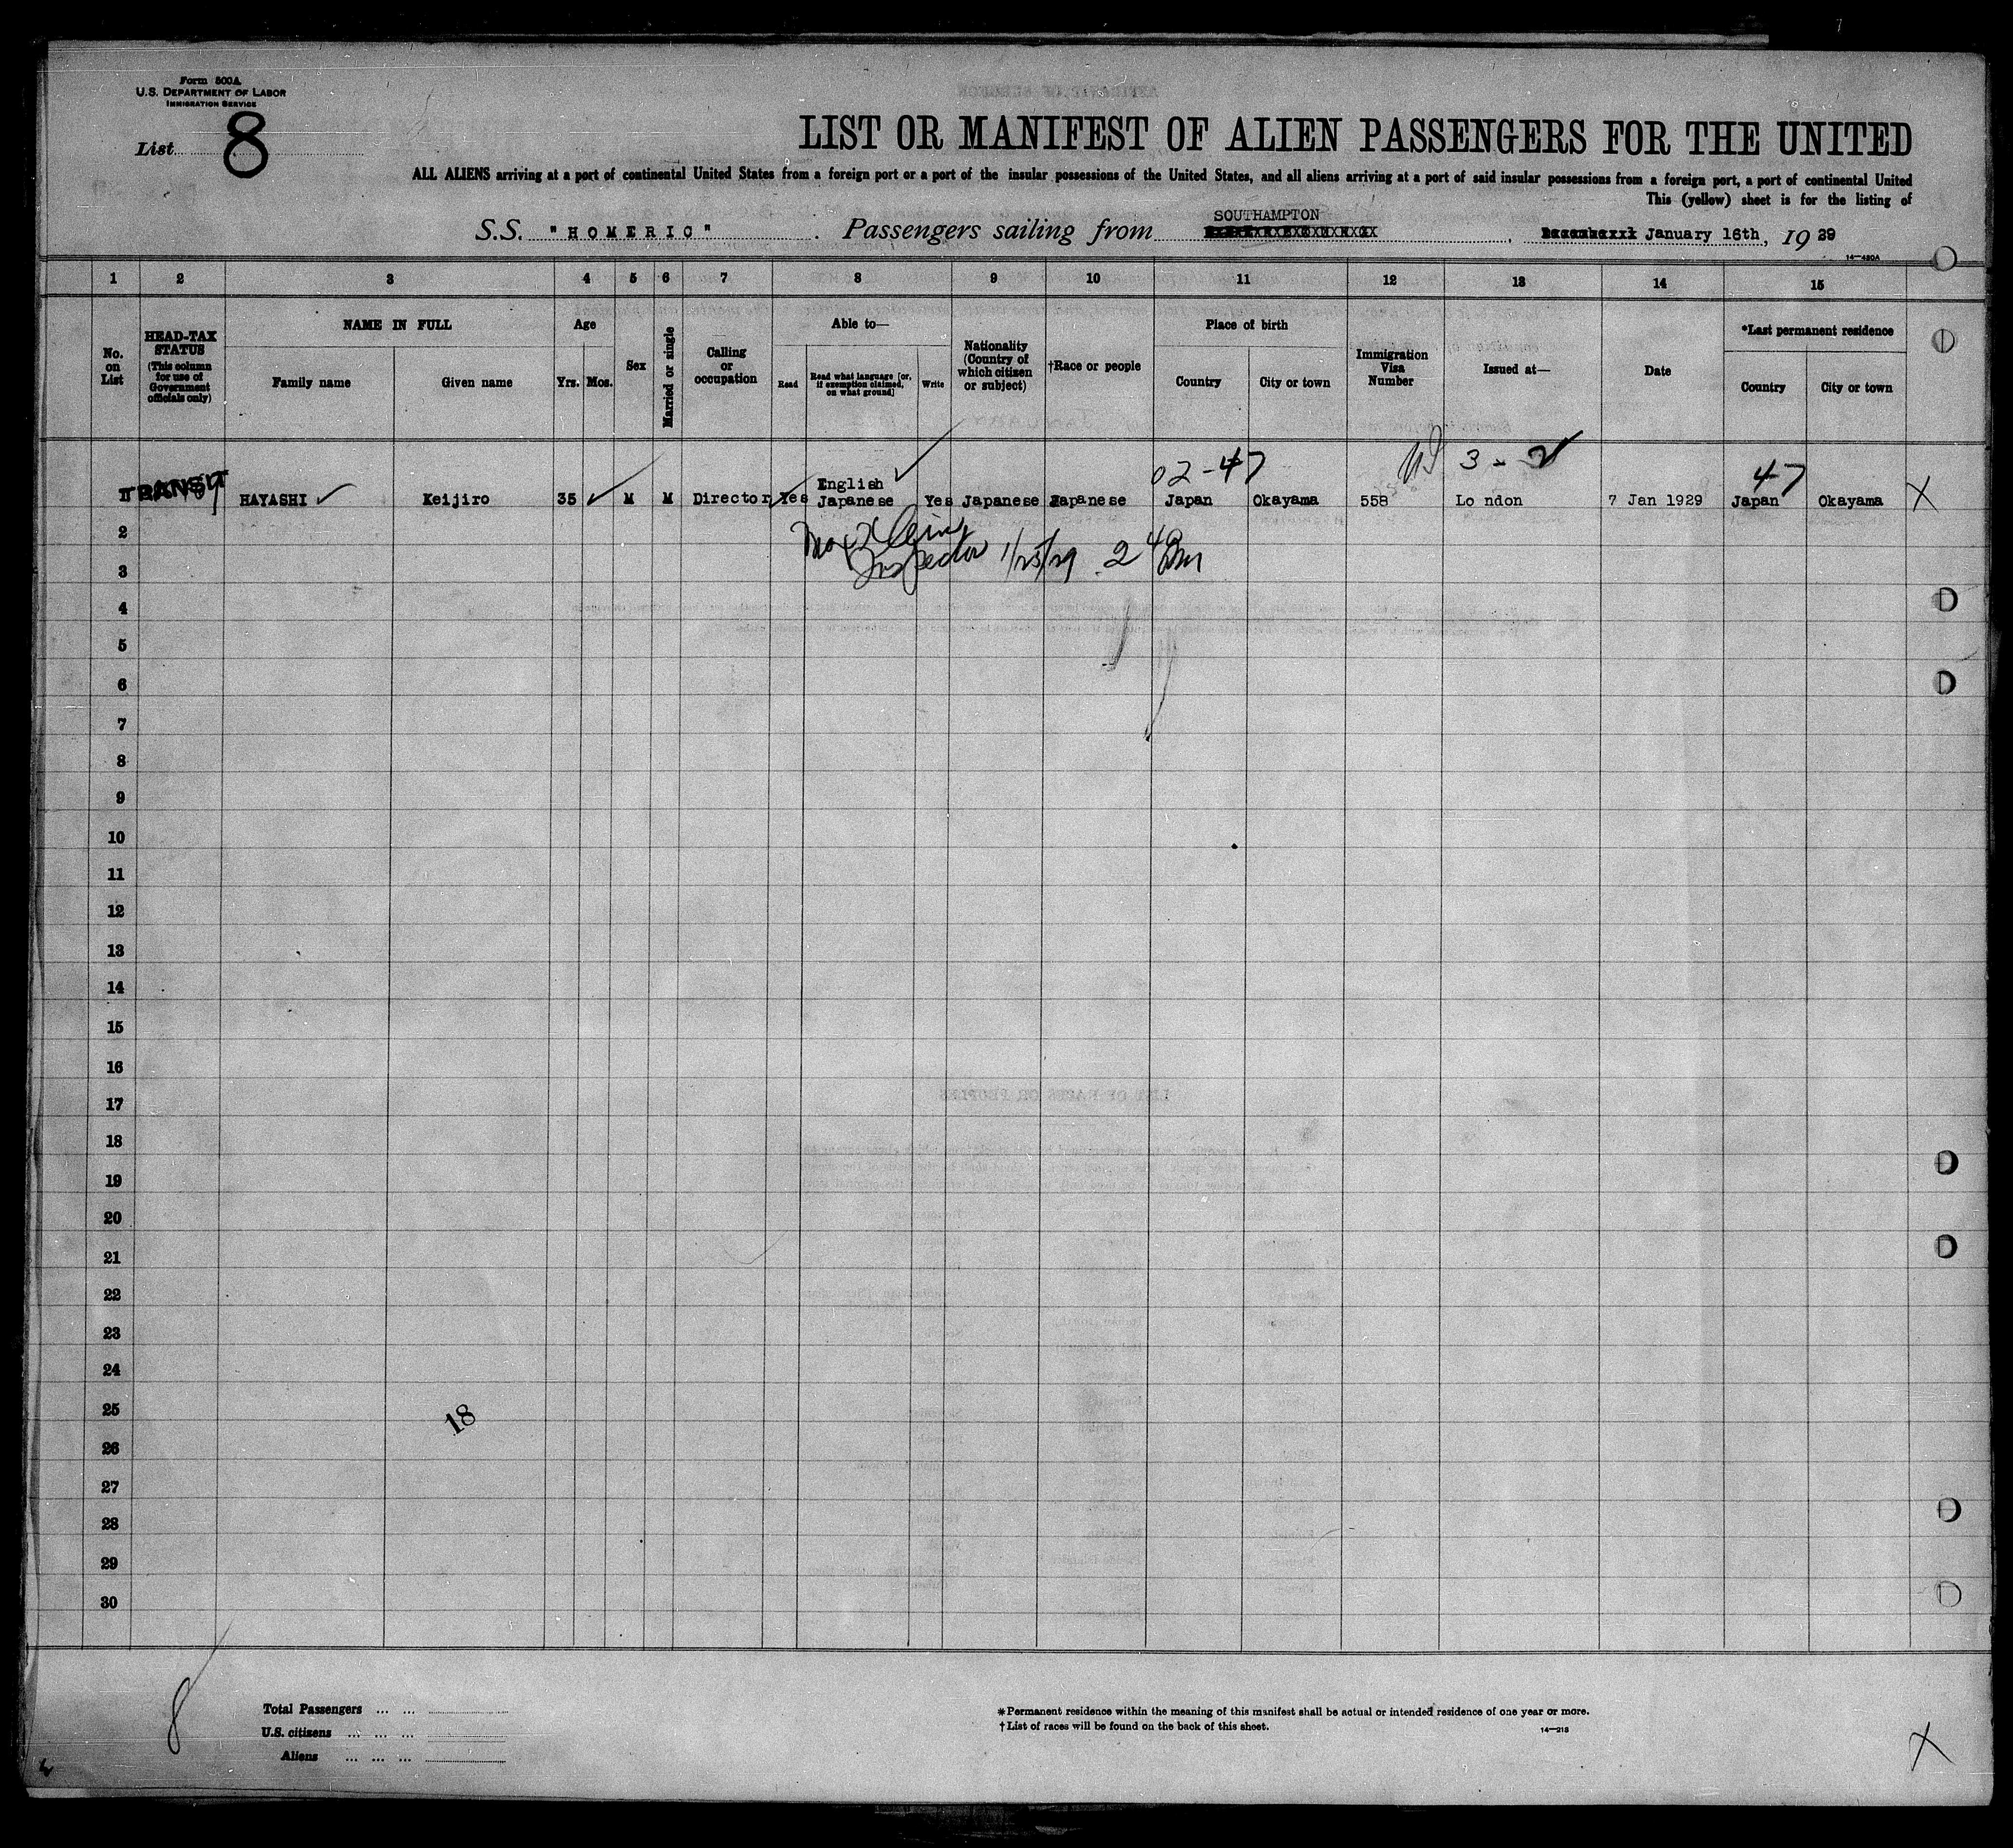 Form 500A
U.S. DEPARTMENT OF LABOR
IMMIGRATION SERVICE
List 8
LIST OR MANIFEST OF ALIEN PASSENGERS FOR THE UNITED
ALL ALIENS arriving at a port of continental United States from a foreign port or a port of the insular possessions of the United States, and all aliens arriving at a port of said insular possessions from a foreign port, a port of continental United
This (yellow) sheet is for the listing of
SOUTHAMPTON
S.S. "HOMERIC" . Passengers sailing from , January 16th, 19 29
14—430A
1 2 3 4 5 6 7 8 9 10 11 12 13 14 15
No. on List
HEAD-TAX STATUS (This column for use of Government officials only)
NAME IN FULL
Family name
Given name
Age
Yrs. Mos.
Sex
Married or single
Calling or occupation
Able to—
Read
Read what language [or, if exemption claimed, on what ground]
Write
Nationality (Country of which citizen or subject)
†Race or people
Place of birth
Country
City or town
Immigration Visa Number
Issued at—
Date
*Last permanent residence
Country
City or town
02-47 3 - 2 47
English
TRANSIT HAYASHI Keijiro 35 M M Director Yes Japanese Yes Japanese Japanese Japan Okayama 558 Lo ndon 7 Jan 1929 Japan Okayama X
2
Inspector 1/23/29 2 40 PM
3
4
5
6
7
8
9
10
11
12
13
14
15
16
17
LIST OF RACES OR PEOPLES
18
19
20
21
22
23
24
25
18
26
27
28
29
30
8
Total Passengers ... ...
U.S. citizens ... ... ...
Aliens ... ... ...
*Permanent residence within the meaning of this manifest shall be actual or intended residence of one year or more.
†List of races will be found on the back of this sheet.
14—213
X